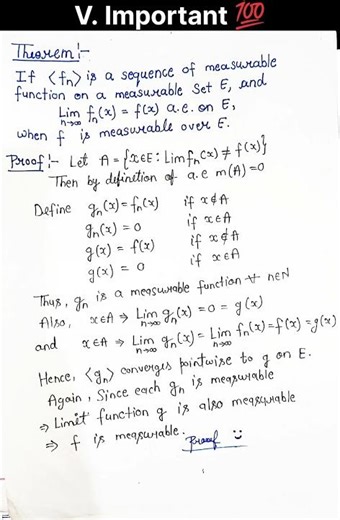 V. Important 💯
Theorem:-
If <fn> is a sequence of measurable
function on a measurable set E, and
Lim n→∞ fn(x) = f(x) a.e. on E,
when f is measurable over E.
Proof:- Let A = {x∈E : Lim fn(x) ≠ f(x)}
Then by definition of a.e m(A)=0
Define gn(x) = fn(x) if x∉A
gn(x) = 0 if x∈A
g(x) = f(x) if x∉A
g(x) = 0 if x∈A
Thus, gn is a measurable function ∀ n∈N
Also, x∈A ⇒ Lim n→∞ gn(x) = 0 = g(x)
and x∈A ⇒ Lim n→∞ gn(x) = Lim n→∞ fn(x) = f(x) = g(x)
Hence, <gn> converges pointwise to g on E.
Again, Since each gn is measurable
⇒ Limit function g is also measurable
⇒ f is measurable.
Proof